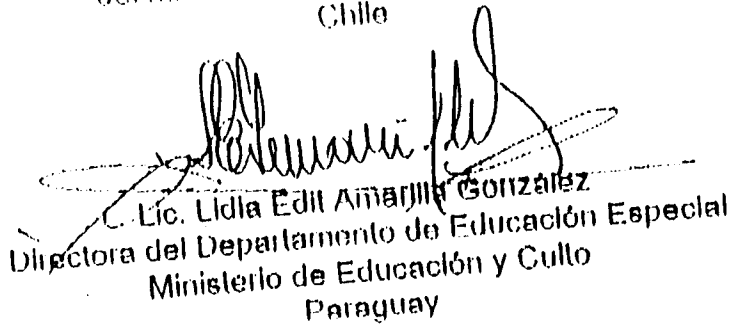 Chile
Lic. Lidia Edit Amarilla González
Directora del Departamento de Educación Especial
Ministerio de Educación y Culto
Paraguay